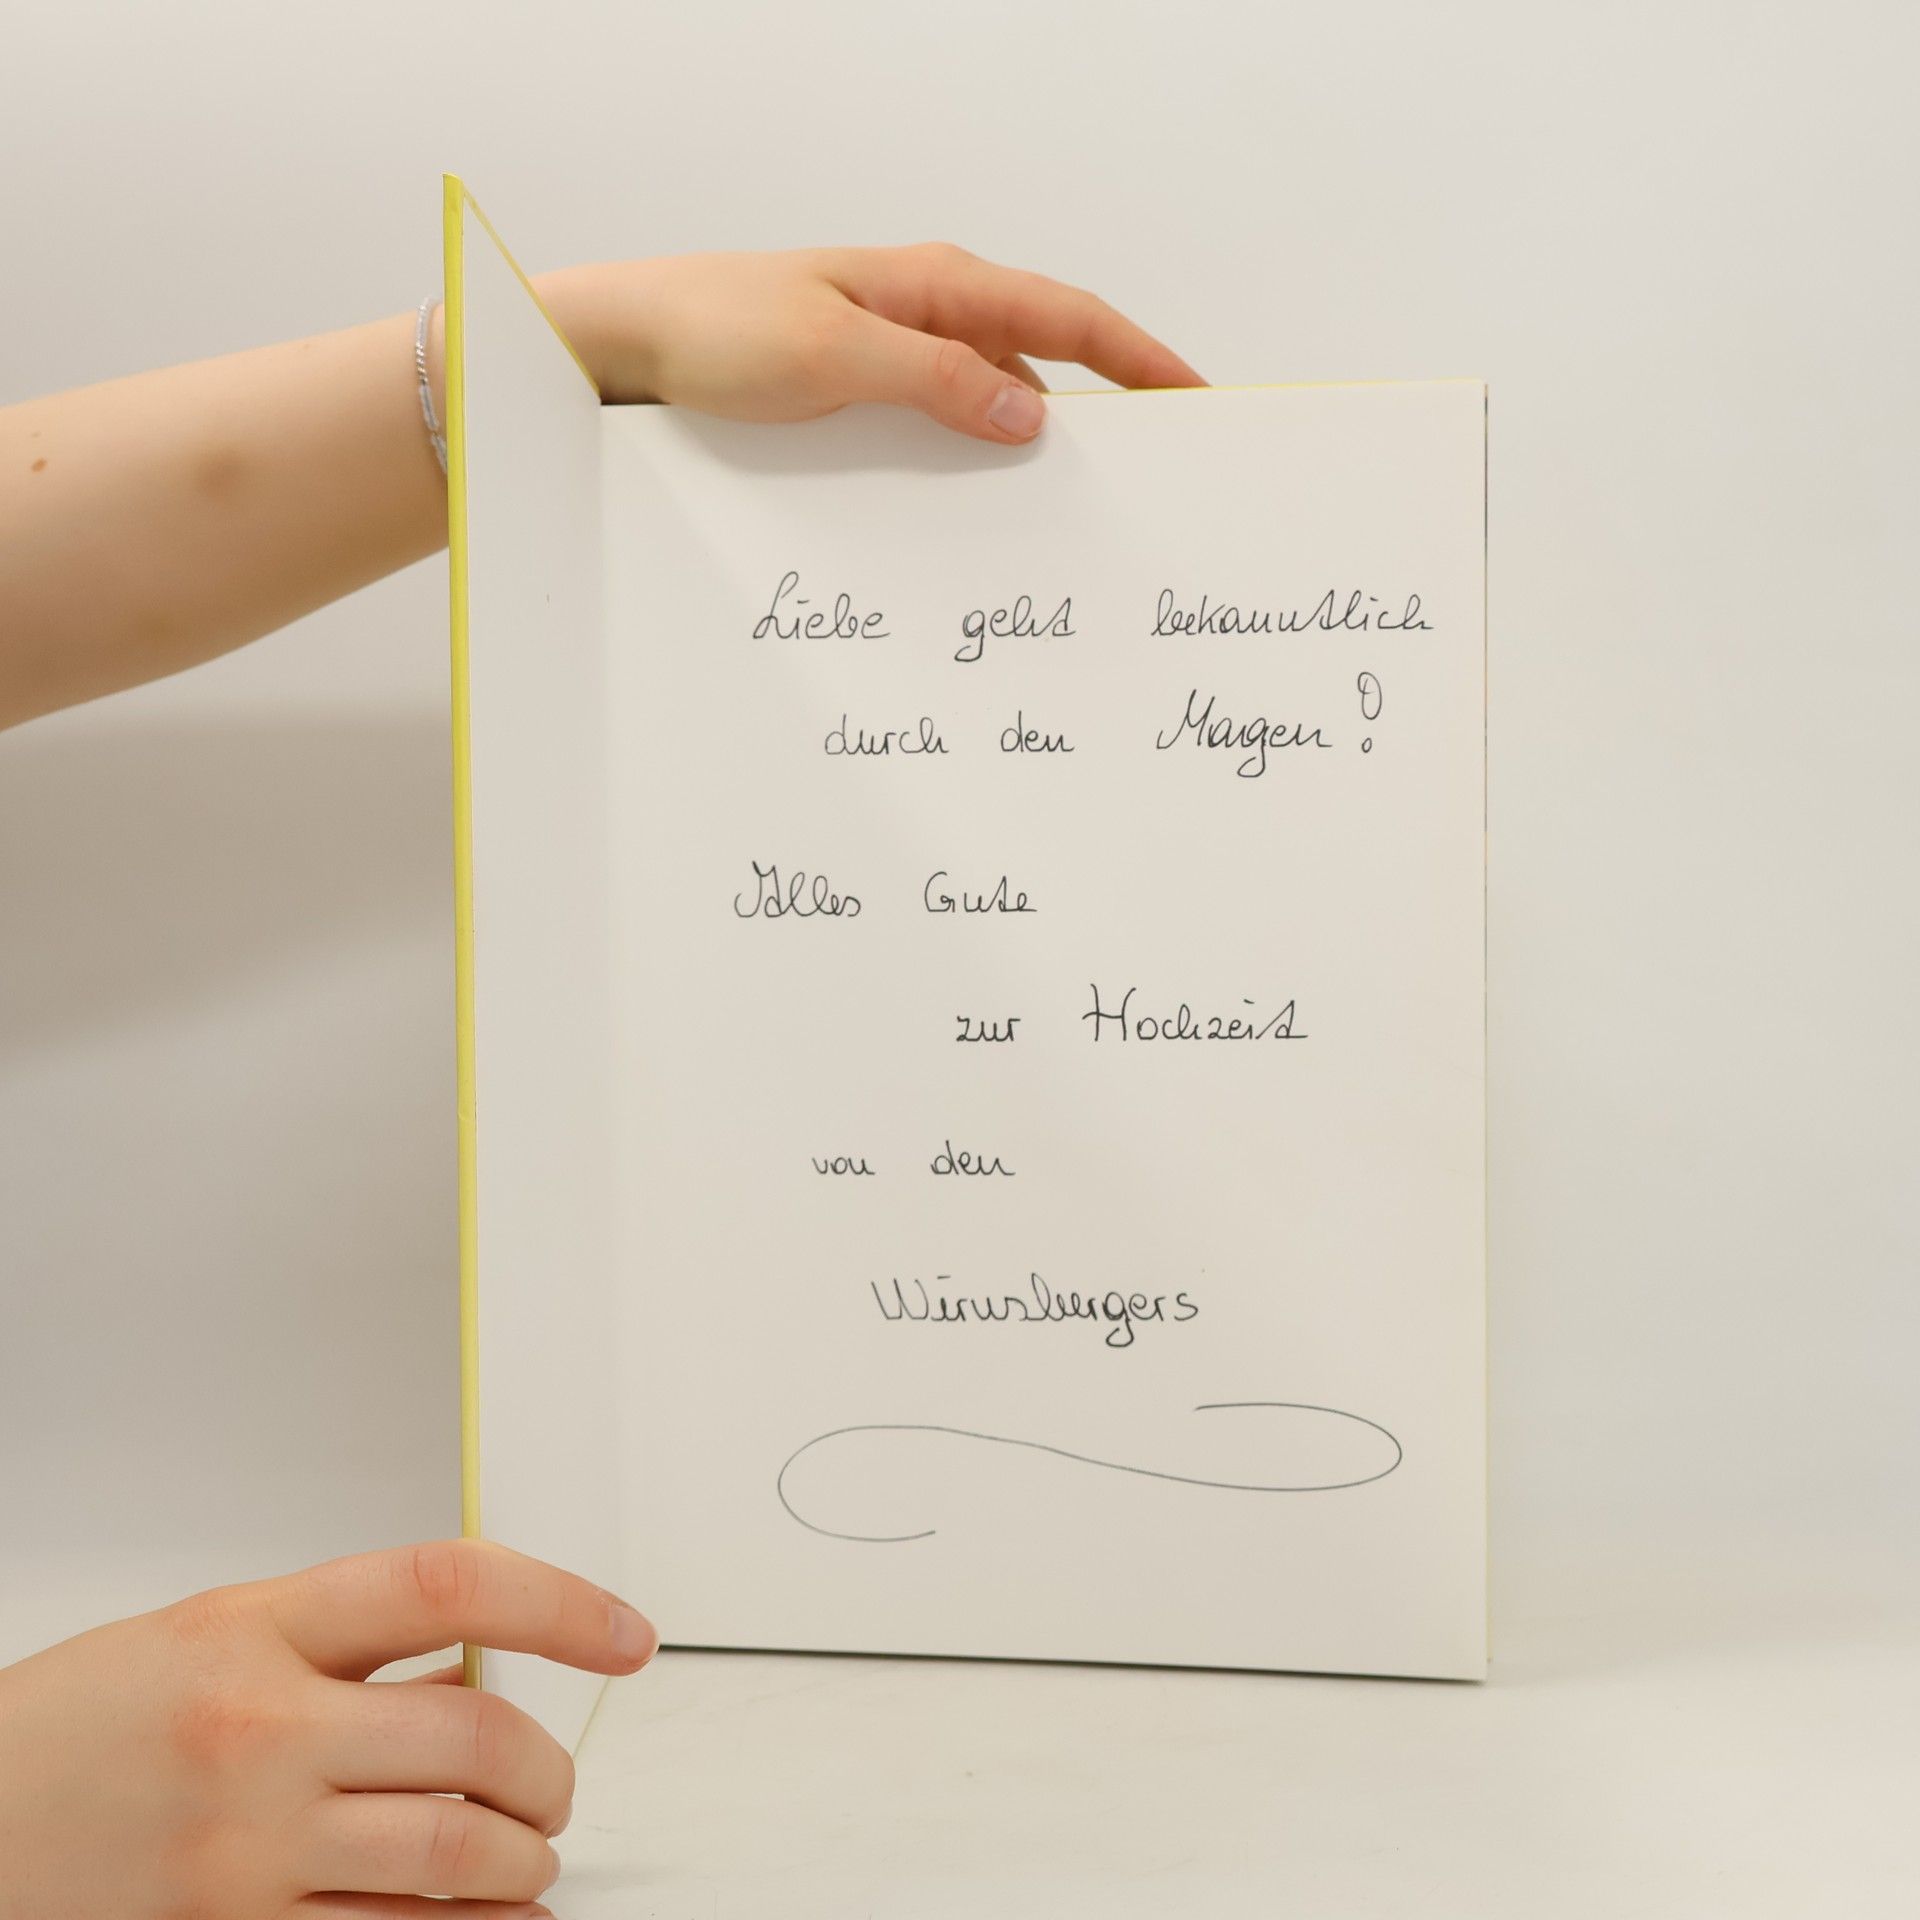 Liebe geht bekanntlich
durch den Magen!
Alles Gute
zur Hochzeit
von den
Wirnsbergers